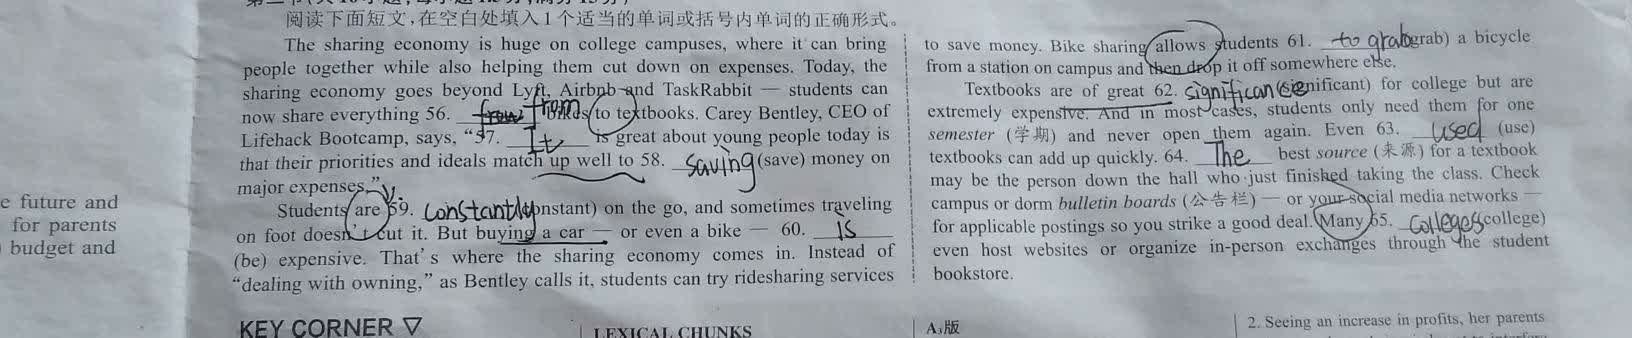 阅读下面短文,在空白处填入1个适当的单词或括号内单词的正确形式。
The sharing economy is huge on college campuses, where it can bring
people together while also helping them cut down on expenses. Today, the
sharing economy goes beyond Lyft, Airbnb and TaskRabbit — students can
now share everything 56. from bikes to textbooks. Carey Bentley, CEO of
Lifehack Bootcamp, says, “57. It is great about young people today is
that their priorities and ideals match up well to 58. saving (save) money on
major expenses.”
Students are 59. constantly (constant) on the go, and sometimes traveling
on foot doesn't cut it. But buying a car — or even a bike — 60. is
(be) expensive. That's where the sharing economy comes in. Instead of
“dealing with owning,” as Bentley calls it, students can try ridesharing services
to save money. Bike sharing allows students 61. to grab (grab) a bicycle
from a station on campus and then drop it off somewhere else.
Textbooks are of great 62. significan (significant) for college but are
extremely expensive. And in most cases, students only need them for one
semester (学期) and never open them again. Even 63. used (use)
textbooks can add up quickly. 64. The best source (来源) for a textbook
may be the person down the hall who just finished taking the class. Check
campus or dorm bulletin boards (公告栏) — or your social media networks —
for applicable postings so you strike a good deal. Many 65. colleges (college)
even host websites or organize in-person exchanges through the student
bookstore.
e future and
for parents
budget and
KEY CORNER ▽
LEXICAL CHUNKS
A₃版
2. Seeing an increase in profits, her parents